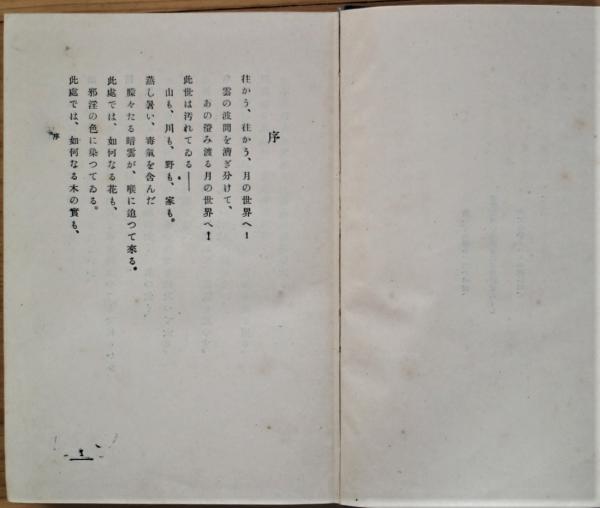 序
往かう、往かう、月の世界へ！
雲の波間を漕ぎ分けて、
あの澄み渡る月の世界へ！
此世は汚れてゐる――
山も、川も、野も、家も。
蒸し暑い、毒氣を含んだ
朦々たる暗雲が、喉に迫つて來る。
此處では、如何なる花も、
邪淫の色に染つてゐる。
此處では、如何なる木の實も、
序
1